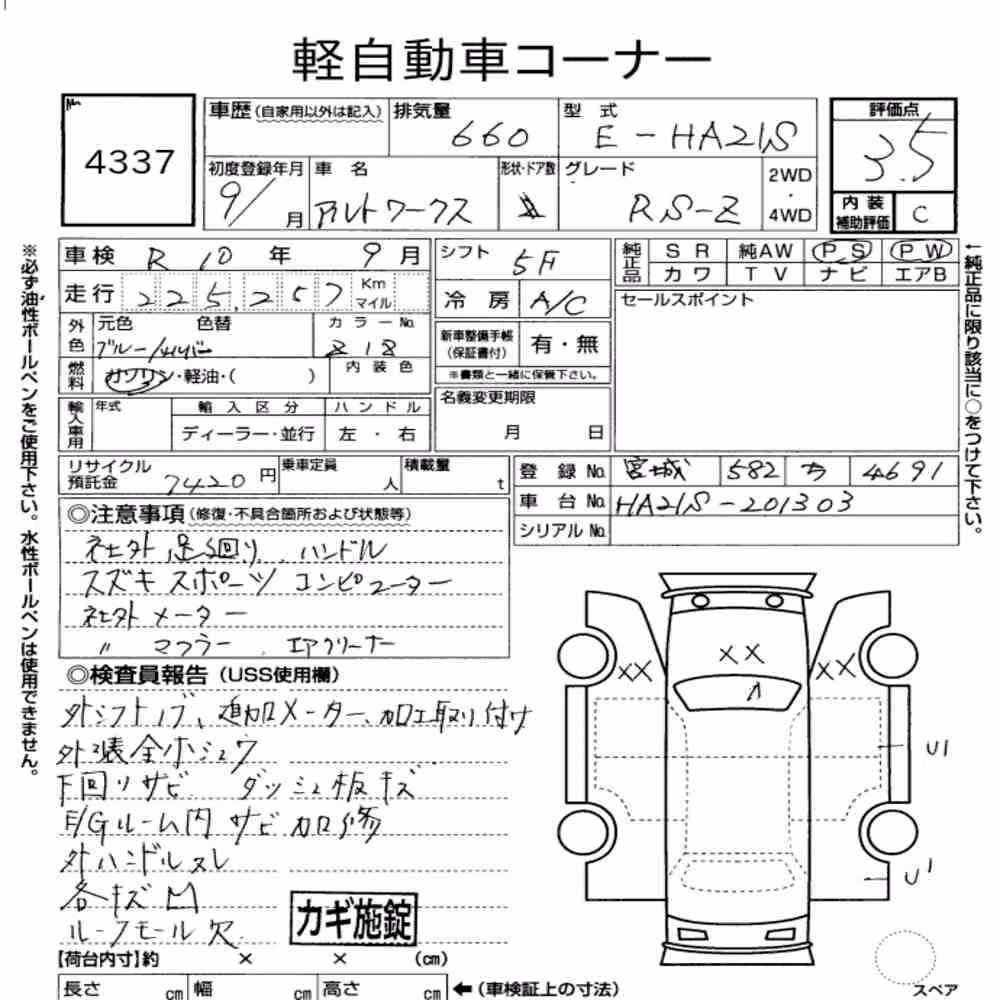 軽自動車コーナー
4337
車歴(自家用以外は記入)
排気量 660
型式 E-HA21S
評価点 3.5
初度登録年月 9/ 月
車名 アルトワークス
形状・ドア数
グレード RS-Z
2WD・4WD
内装補助評価 C
車検 R10年9月
シフト 5F
純正品 SR 純AW PS PW
カワ TV ナビ エアB
走行 225,257 Km マイル
冷房 A/C
セールスポイント
外色 元色 ブルー/シルバー 色替
カラーNo. Z18
新車整備手帳(保証書付) 有・無
※書類と一緒に保管下さい。
燃料 ガソリン・軽油・( )
内装色
名義変更期限 月 日
輸入車用 年式 輸入区分 ハンドル
ディーラー・並行 左・右
リサイクル預託金 7420円
乗車定員 人
積載量 t
登録No. 宮城 582 ち 4691
車台No. HA21S-201303
シリアルNo.
◎注意事項(修復・不具合箇所および状態等)
社外 足回り、ハンドル
スズキスポーツ コンピューター
社外メーター
〃 マフラー、エアクリーナー
◎検査員報告(USS使用欄)
外シフトノブ、追加メーター、加工取り付け
外張全ホシュウ
下回りサビ ダッシュ板キズ
E/Gルーム内サビ加修
外ハンドルスレ
各キズ凹
ルーフモール欠
カギ施錠
【荷台内寸】約 × × (cm)
長さ cm 幅 cm 高さ cm
←(車検証上の寸法)
XX
XX
XX
A
U1
U1
スペア
※必ず油性ボールペンをご使用下さい。水性ボールペンは使用できません。
←純正品に限り該当に○をつけて下さい。